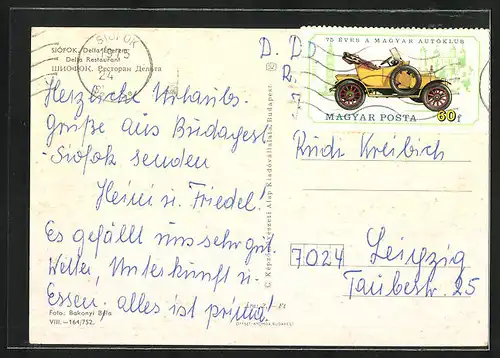 SIÓFOK. Delta Étterem
Delta Restaurant
ШИОФОК. Ресторан Дельта
SIÓFOK
24
Herzliche Urlaubs-
grüße aus Budapest-
Siofok senden
Heini u. Friedel!
Es gefällt uns sehr gut.
Wetter, Unterkunft u.
Essen, alles ist prima!
Foto: Bakonyi Béla
VIII.—164/752.
C. Képzőművészeti Alap Kiadóvállalata, Budapest
OFFSET NYOMDA, BUDAPEST
75 ÉVES A MAGYAR AUTÓKLUB
MAGYAR POSTA 60f
D. DD
Rudi Kreibich
7024 Leipzig
Taubestr. 25